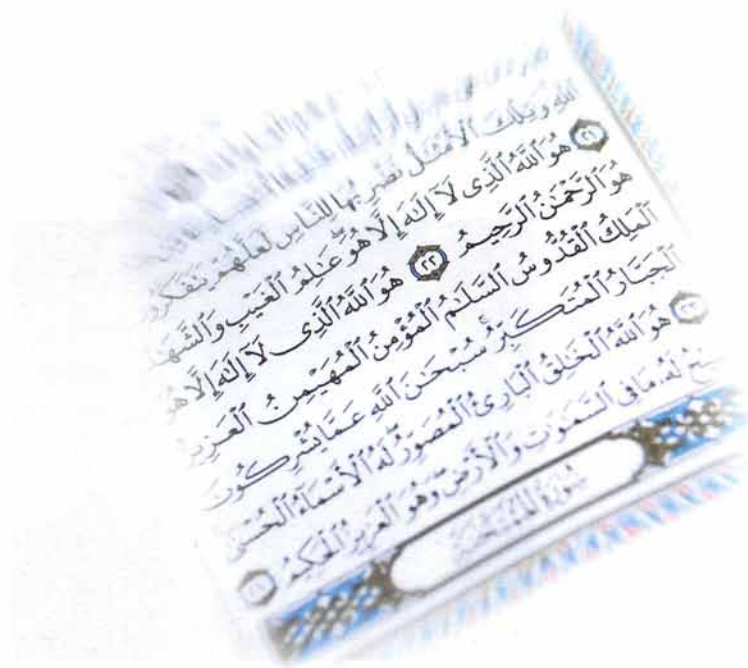 ٱللَّهِ وَتِلْكَ ٱلْأَمْثَٰلُ نَضْرِبُهَا لِلنَّاسِ لَعَلَّهُمْ يَتَفَكَّرُو
٢١ هُوَ ٱللَّهُ ٱلَّذِى لَآ إِلَٰهَ إِلَّا هُوَ عَٰلِمُ ٱلْغَيْبِ وَٱلشَّهَ
هُوَ ٱلرَّحْمَٰنُ ٱلرَّحِيمُ ٢٢ هُوَ ٱللَّهُ ٱلَّذِى لَآ إِلَٰهَ إِلَّا هُوَ
ٱلْمَلِكُ ٱلْقُدُّوسُ ٱلسَّلَٰمُ ٱلْمُؤْمِنُ ٱلْمُهَيْمِنُ ٱلْعَزِيزُ
ٱلْجَبَّارُ ٱلْمُتَكَبِّرُ سُبْحَٰنَ ٱللَّهِ عَمَّا يُشْرِكُونَ
٢٣ هُوَ ٱللَّهُ ٱلْخَٰلِقُ ٱلْبَارِئُ ٱلْمُصَوِّرُ لَهُ ٱلْأَسْمَآءُ ٱلْحُسْنَىٰ
بِّحُ لَهُۥ مَا فِى ٱلسَّمَٰوَٰتِ وَٱلْأَرْضِ وَهُوَ ٱلْعَزِيزُ ٱلْحَكِيمُ ٢٤
سُورَةُ ٱلْمُمْتَحَنَةِ